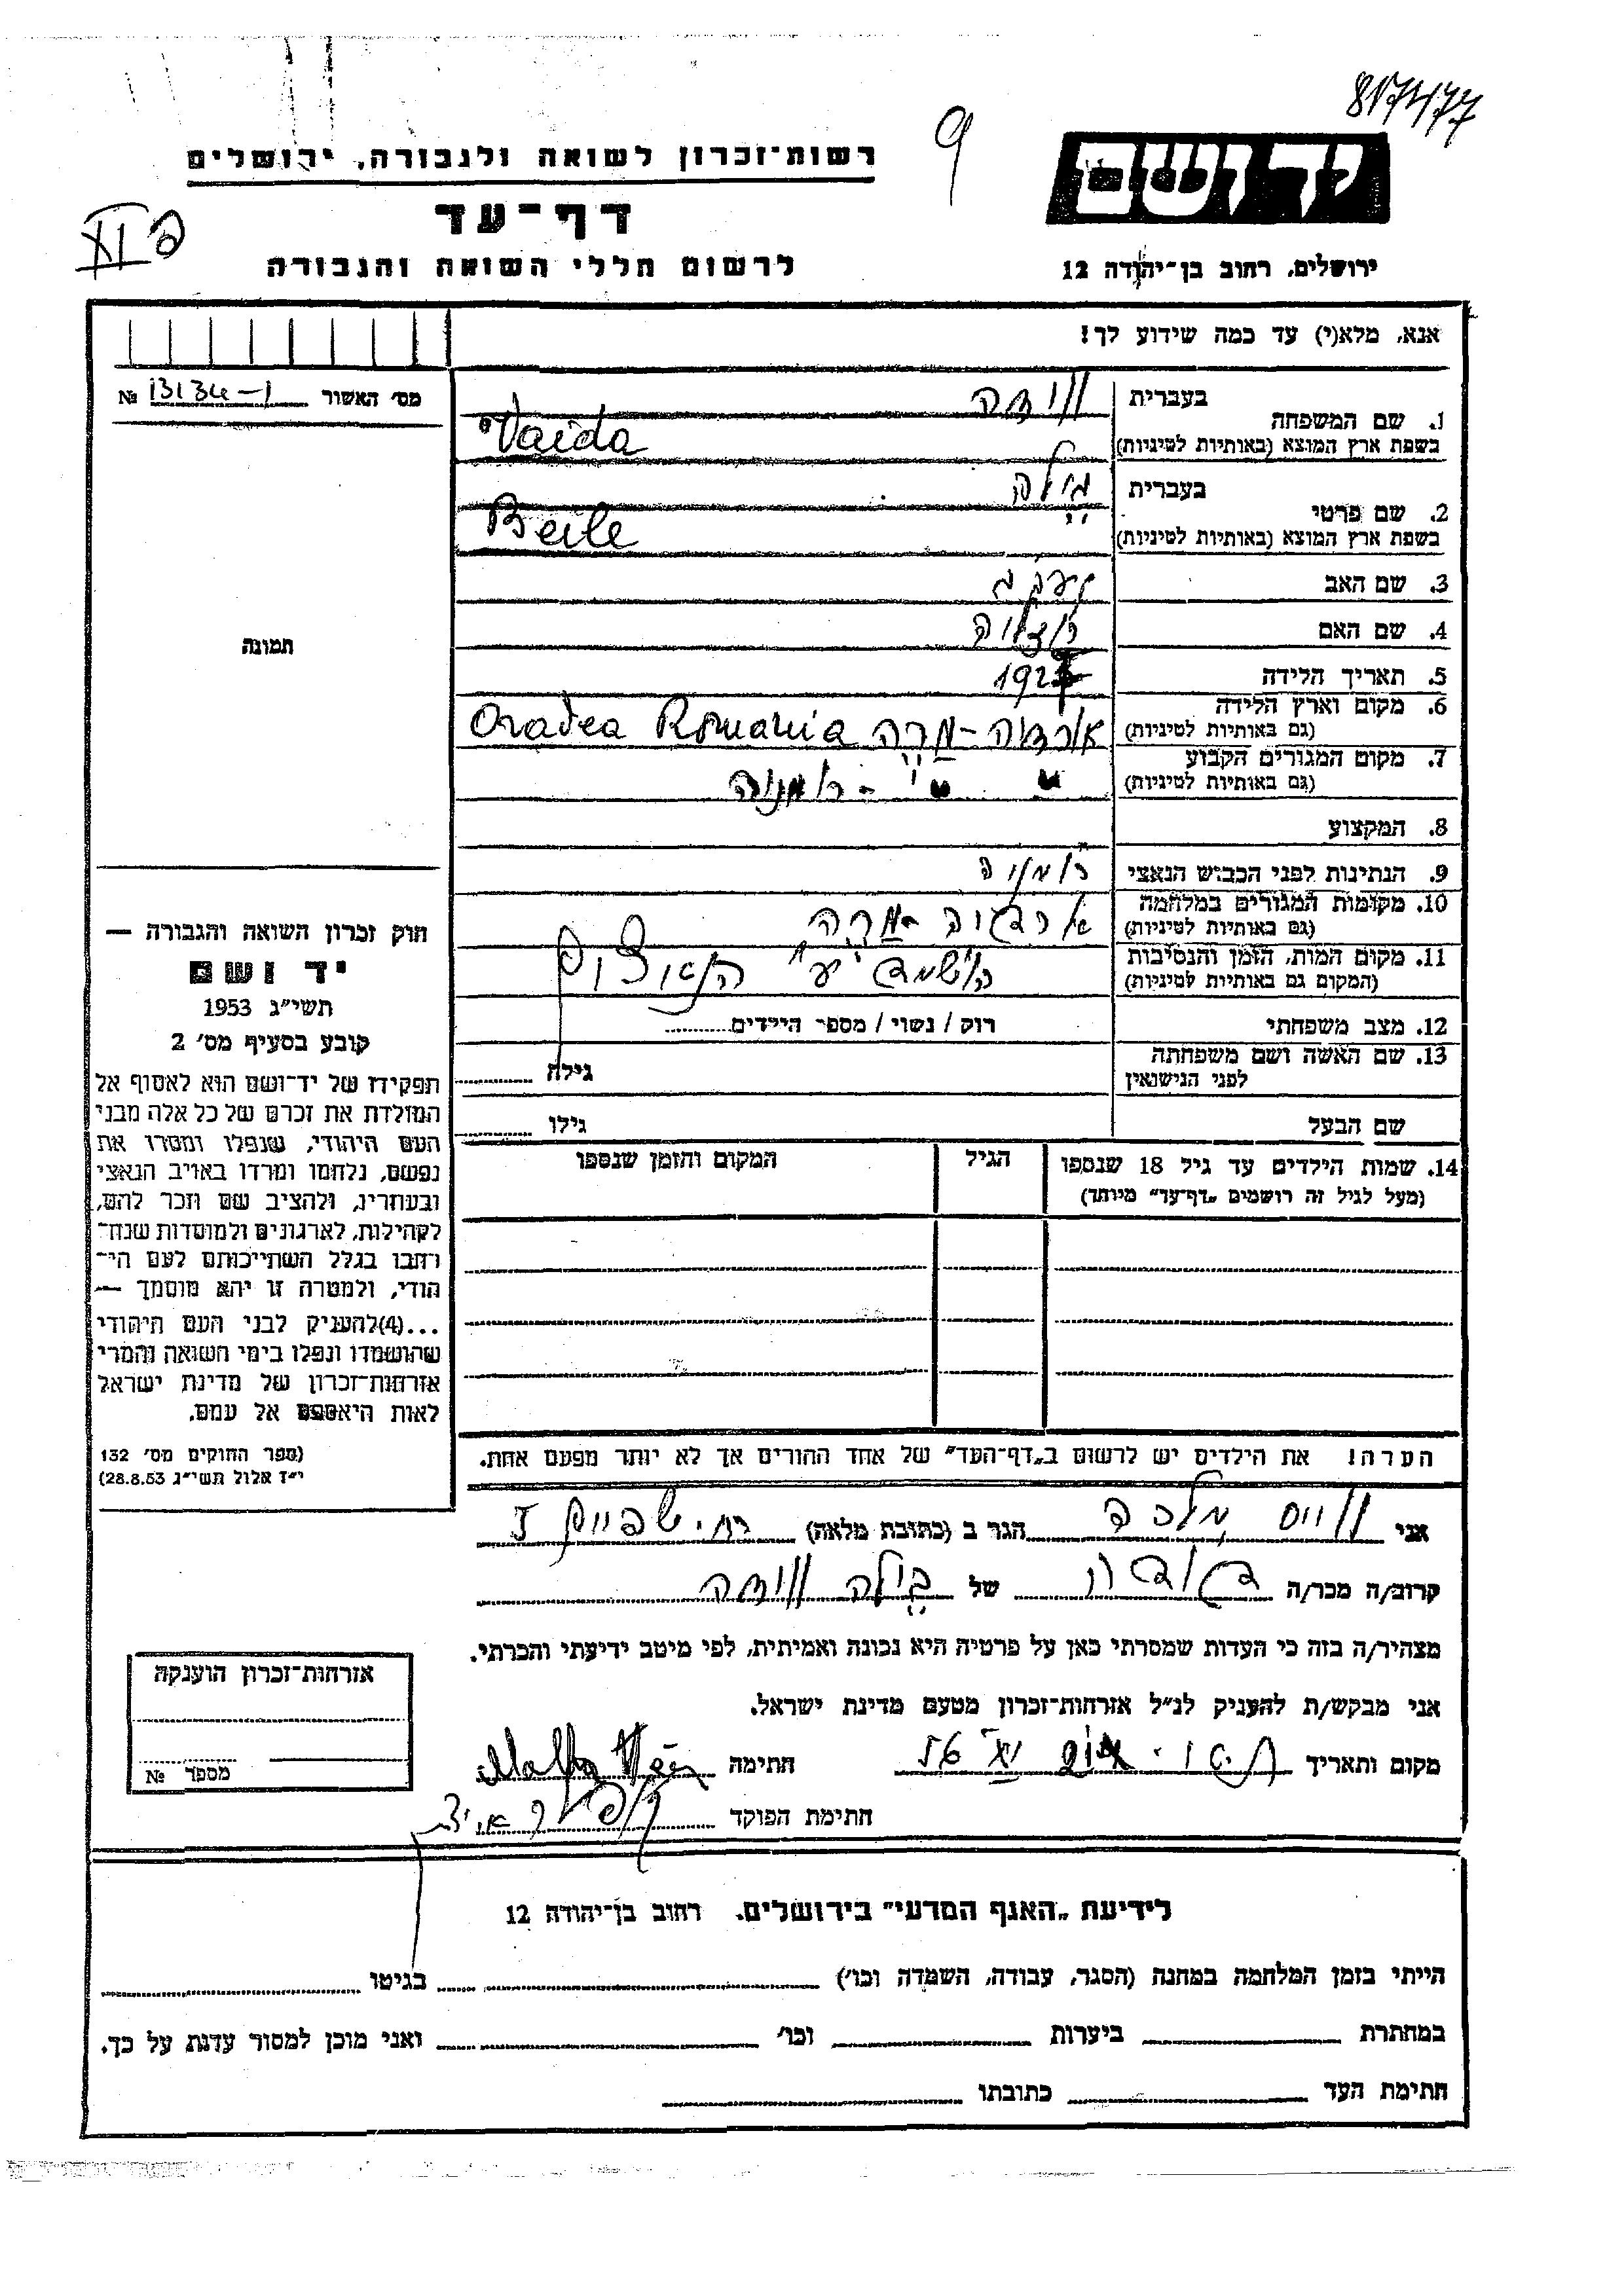 817477
9
יד ושם
רשות־זכרון לשואה ולגבורה, ירושלים
דף־עד
לרשום חללי השואה והגבורה
ירושלים, רחוב בן־יהודה 12
אנא, מלא(י) עד כמה שידוע לך!
מס׳ האשור 13134-1 №
1. שם המשפחה
בעברית
בשפת ארץ המוצא (באותיות לטיניות) Vaida
2. שם פרטי
בעברית ביילה
בשפת ארץ המוצא (באותיות לטיניות) Beile
3. שם האב יעקב
4. שם האם
5. תאריך הלידה
6. מקום וארץ הלידה
(גם באותיות לטיניות) אורדיה-מרה Oradea Romania
7. מקום המגורים הקבוע
(גם באותיות לטיניות) " " - רומניה
8. המקצוע
9. הנתינות לפני הכבוש הנאצי רומניה
10. מקומות המגורים במלחמה
(גם באותיות לטיניות)
11. מקום המות, הזמן והנסיבות
(המקום גם באותיות לטיניות) הושמד ע״י הנאצים
12. מצב משפחתי רוק / נשוי / מספר הילדים
13. שם האשה ושם משפחתה
לפני הנישנאין
גילה
שם הבעל גילו
14. שמות הילדים עד גיל 18 שנספו
(מעל לגיל זה רושמים „דף־עד״ מיוחד)
הגיל
המקום והזמן שנספו
הערה! את הילדים יש לרשום ב„דף־העד״ של אחד ההורים אך לא יותר מפעם אחת.
תמונה
חוק זכרון השואה והגבורה —
יד ושם
תשי״ג 1953
קובע בסעיף מס׳ 2
תפקידו של יד־ושם הוא לאסוף אל
המולדת את זכרם של כל אלה מבני
העם היהודי, שנפלו ומסרו את
נפשם, נלחמו ומרדו באויב הנאצי
ובעוזריו, ולהציב שם וזכר להם,
לקהילות, לארגונים ולמוסדות שנח־
רחבו בגלל השתייכותם לעם הי־
הודי, ולמטרה זו יהא מוסמך —
...(4)להעניק לבני העם היהודי
שהושמדו ונפלו בימי השואה והמרי
אזרחות־זכרון של מדינת ישראל
לאות היאספם אל עמם.
(ספר החוקים מס׳ 132
י״ז אלול תשי״ג 28.8.53)
אני ווייס מלכה הגר ב (כתובת מלאה)
קרוב/ה מכר/ה של ביילה
מצהיר/ה בזה כי העדות שמסרתי כאן על פרטיה היא נכונה ואמיתית, לפי מיטב ידיעתי והכרתי.
אני מבקש/ת להעניק לנ״ל אזרחות־זכרון מטעם מדינת ישראל.
מקום ותאריך חתימה
חתימת הפוקד
אזרחות־זכרון הוענקה
מספר №
לידיעת „האגף המדעי״ בירושלים. רחוב בן־יהודה 12
הייתי בזמן המלחמה במחנה (הסגר, עבודה, השמדה וכו׳) בגיטו
במחתרת ביערות וכו׳ ואני מוכן למסור עדות על כך.
חתימת העד כתובתו